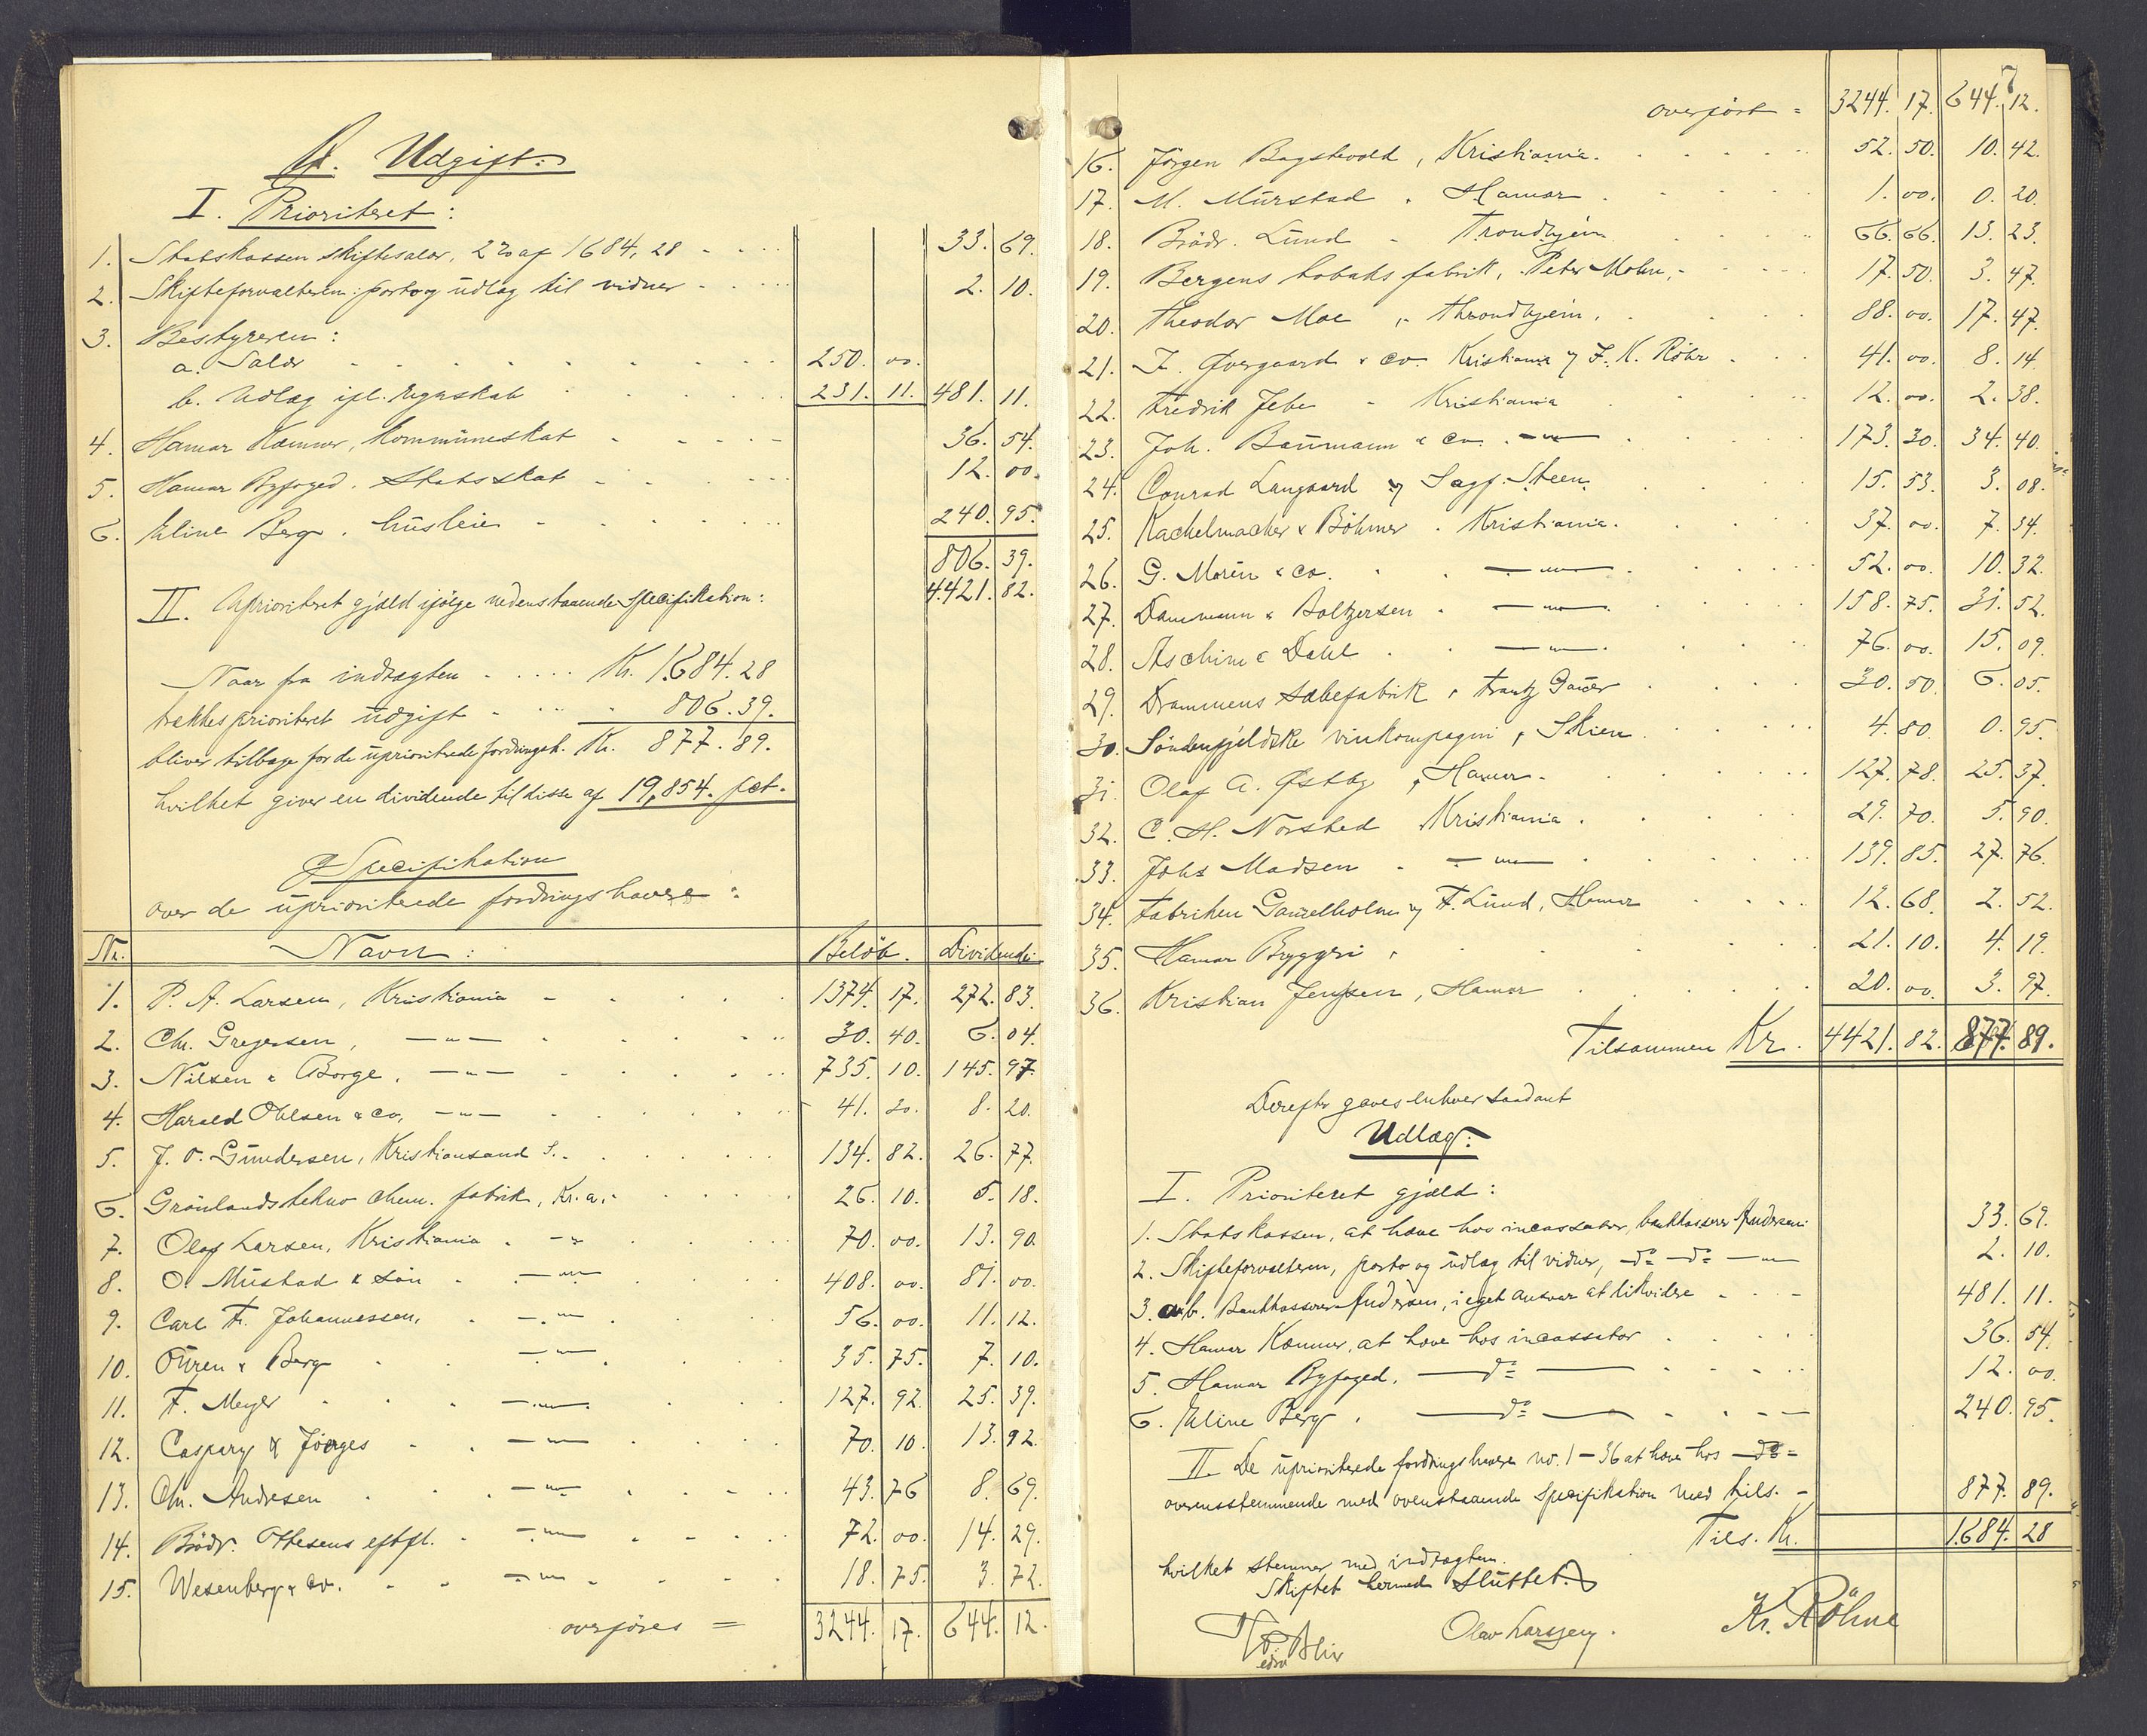 B. Udgift:
I. Prioriteret:
1. Statskassen skiftesalær, 2% af 1684,28 33. 69.
2. Skifteforvalteren: porto og udlæg til vidner 2. 10.
3. Bestyreren:
a. Salær 250. 00.
b. Udlæg ifl. regnskab 231. 11. 481. 11.
4. Hamar Kæmner, kommuneskat 36. 54.
5. Hamar Byfoged, Statsskat 12. 00.
6. Eline Berg, husleie 240. 95.
806. 39.
II. Uprioriteret gjæld ifølge nedenstaaende Specifikation: 4.421. 82.
Naar fra indtægten Kr. 1.684.28
trækkes prioriteret udgift 806.39.
bliver tilbage for de uprioriterede fordringsh. Kr. 877.89.
hvilket giver en dividende til disse af 19,854. pct.
Specifikation
over de uprioriterede fordringshavere:
Nr. Navn: Beløb. Dividende
1. P. A. Larsen, Kristiania 1374. 17. 272. 83.
2. Chr. Gregersen, —"— 30. 40. 6. 04.
3. Nilsen & Borge, —"— 735. 10. 145. 97.
4. Harald Ohlsen & Co, —"— 41. 30. 8. 20.
5. J. O. Gundersen, Kristiansand S. 134. 82. 26. 77.
6. Grønlands tekno chem. fabrik, Kr.a. 26. 10. 5. 18.
7. Olaf Larsen, Kristiania 70. 00. 13. 90.
8. O. Mustad & Søn —"— 408. 00. 81. 00.
9. Carl Fr. Johannessen, —"— 56. 00. 11. 12.
10. Øuren & Berg —"— 35. 75. 7. 10.
11. F. Meyer —"— 127. 92. 25. 39.
12. Caspary & Joerges —"— 70. 10. 13. 92.
13. Chr. Andresen —"— 43. 76 8. 69.
14. Brødr. Ottesens eftfl. —"— 72. 00. 14. 29.
15. Wesenberg & Co. —"— 18. 75. 3. 72.
overføres = 3244. 17. 644. 12.
7
overført = 3244. 17. 644. 12.
16. Jørgen Bagstevold, Kristiania. 52. 50. 10. 42.
17. M. Murstad, Hamar 1. 00. 0. 20.
18. Brødr. Lund - Trondhjem 66. 66. 13. 23.
19. Bergens tobaksfabrik, Peter Mohn, 17. 50. 3. 47.
20. Theodor Moe, Throndhjem, 88. 00. 17. 47.
21. Øvergaard & Co Kristiania v/ F. K. Röhr 41. 00. 8. 14.
22. Fredrik Jebe - Kristiania 12. 00. 2. 38.
23. Joh. Baumann & Co. —"— 173. 30. 34. 40.
24. Conrad Langaard v/ Sagf. Steen. 15. 53. 3. 08.
25. Kachelmacher & Böhmer. Kristiania. 37. 00. 7. 34.
26. G. Morén & Co. —"— 52. 00. 10. 32.
27. Dammann & Boltzersen —"— 158. 75. 31. 52.
28. Aschim & Dahl —"— 76. 00. 15. 09.
29. Drammens sæbefabrik, Frantz Gauer 30. 50. 6. 05.
30. Søndenfjeldske vinkompagni, Skien 4. 80. 0. 95.
31. Olaf A. Østby, Hamar. 127. 78. 25. 37.
32. C. H. Norsted Kristiania. 29. 70. 5. 90.
33. Johs Madsen —"— 139. 85. 27. 76.
34. Fabriken v/ F. Lund, Hamar 12. 68. 2. 52.
35. Hamar Bryggeri, 21. 10. 4. 19.
36. Kristian Jensen, Hamar 20. 00. 3. 97.
Tilsammen Kr. 4421. 82. 877. 89.
Derefter gaves enhver saadant
Udlæg:
I. Prioriteret gjæld:
1. Statskassen, at hæve hos incassator, bankkasserer Andersen 33. 69.
2. Skifteforvalteren, porto og udlæg til vidner, —do— —do— —"— 2. 10.
3. a&b. Bankkasserer Andersen, i eget ansvar at likvidere 481. 11.
4. Hamar Kæmner, at hæve hos incassator 36. 54.
5. Hamar Byfoged. —do— 12. 00.
6. Eline Berg, —do— 240. 95.
II. De uprioriterede fordringshavere no. 1-36 at hæve hos —do—
overensstemmende med ovenstaaende Specifikation med tils. 877. 89.
Tils. Kr. 1.684. 28
hvilket stemmer med indtægten.
Skiftet hermed sluttet.
edsv
Olav Larssen.
Kr. Röhne